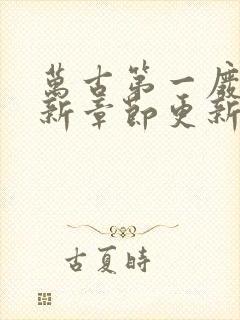 萬古第一廢
新章節更新
古夏時